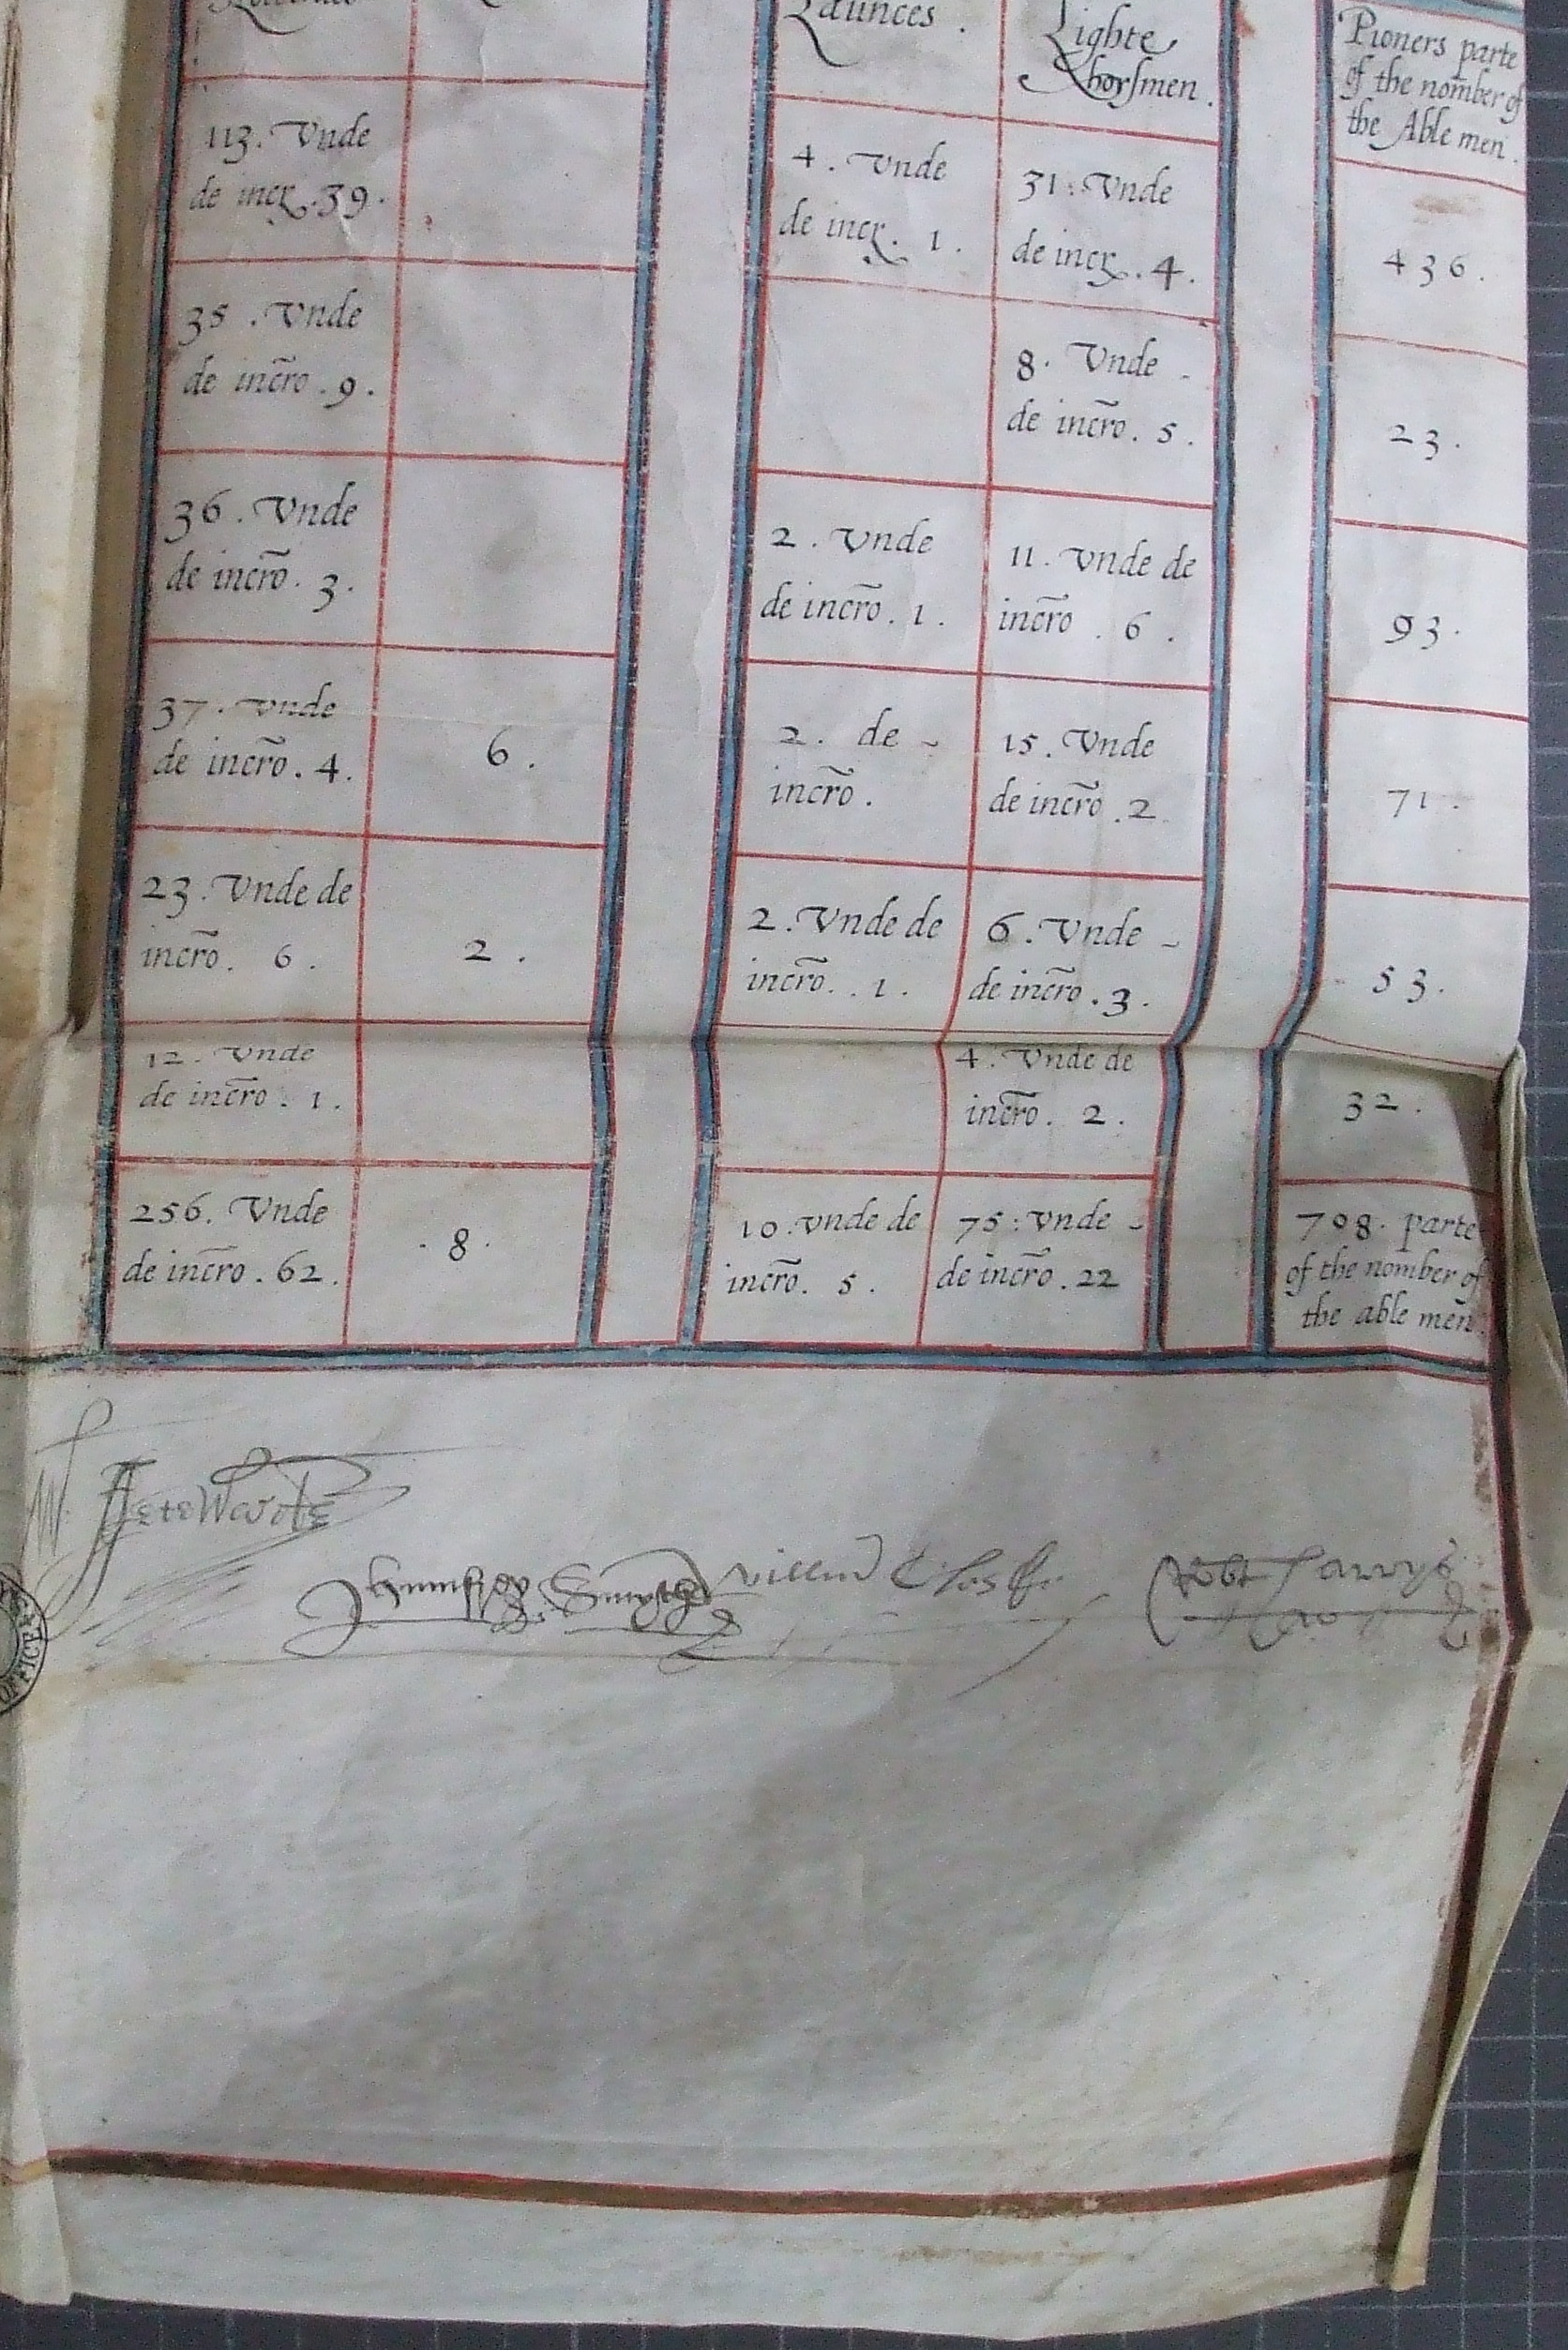 Launces .
Lighte
horsmen .
Pioners parte
of the nomber of
the Able men .
113. Vnde
de incr. 39 .
4 . Vnde
de incr. 1 .
31 : Vnde
de incr. 4 .
436 .
35 . Vnde
de incro . 9 .
8 . Vnde -
de incro . 5 .
23 .
36 . Vnde
de incro . 3 .
2 . Vnde
de incro . 1 .
11 . Vnde de
incro . 6 .
93 .
37 . Vnde
de incro . 4 .
6 .
2 . de -
incro .
15 . Vnde
de incro . 2
71 .
23 . Vnde de
incro . 6 .
2 .
2 . Vnde de
incro . . 1 .
6 . Vnde -
de incro . 3 .
53 .
12 . Vnde
de incro . 1 .
4 . Vnde de
incro . 2 .
32 .
256 . Vnde
de incro . 62 .
. 8 .
10 . Vnde de
incro . 5 .
75 : Vnde -
de incro . 22
708 . parte
of the nomber of
the able men .
Humffrey Smythe